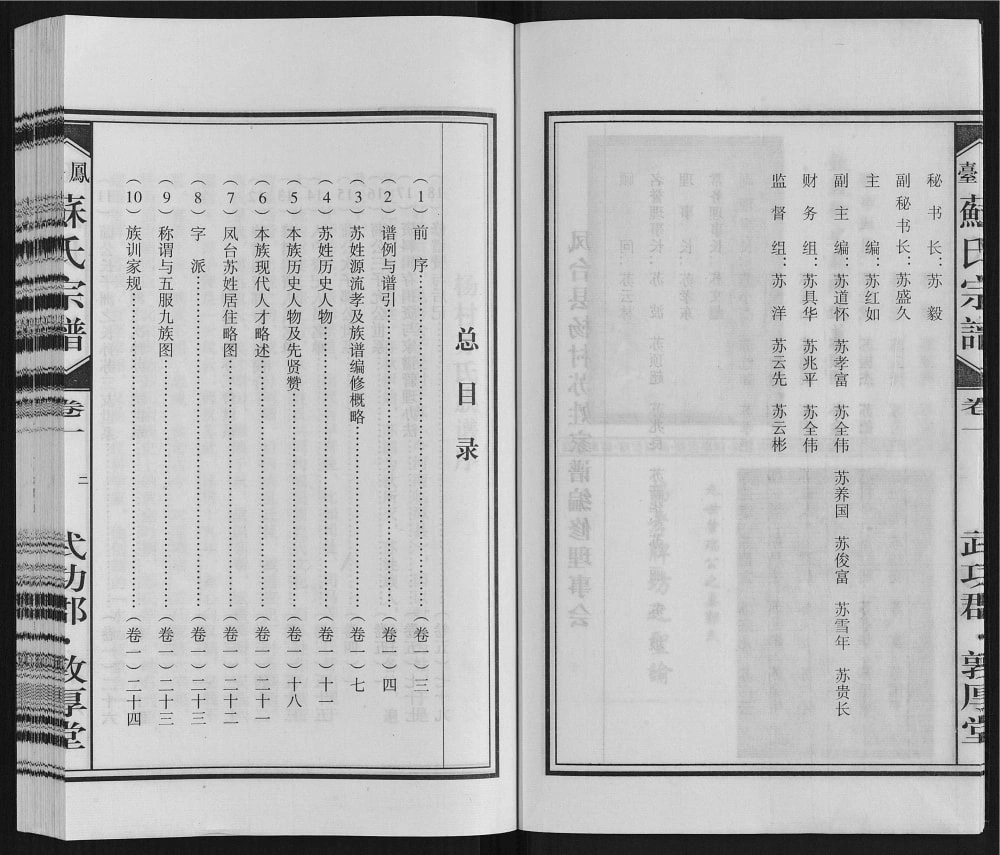 臺
蘇氏宗譜
卷一
武功郡·敦厚堂
秘书长：苏毅
副秘书长：苏盛久
主编：苏红如
副主编：苏道怀 苏孝富 苏全伟 苏养国 苏俊富 苏雪年 苏贵长
财务组：苏具华 苏兆平 苏全伟
监督组：苏洋 苏云先 苏云彬
总目录
（1）前序……（卷一）三
（2）谱例与谱引……（卷一）四
（3）苏姓源流孝及族谱编修概略……（卷一）七
（4）苏姓历史人物……（卷一）十一
（5）本族历史人物及先贤赞……（卷一）十八
（6）本族现代人才略述……（卷一）二十一
（7）凤台苏姓居住略图……（卷一）二十二
（8）字派……（卷一）二十三
（9）称谓与五服九族图……（卷一）二十三
（10）族训家规……（卷一）二十四
鳳
蘇氏宗譜
卷一
二
武功郡·敦厚堂